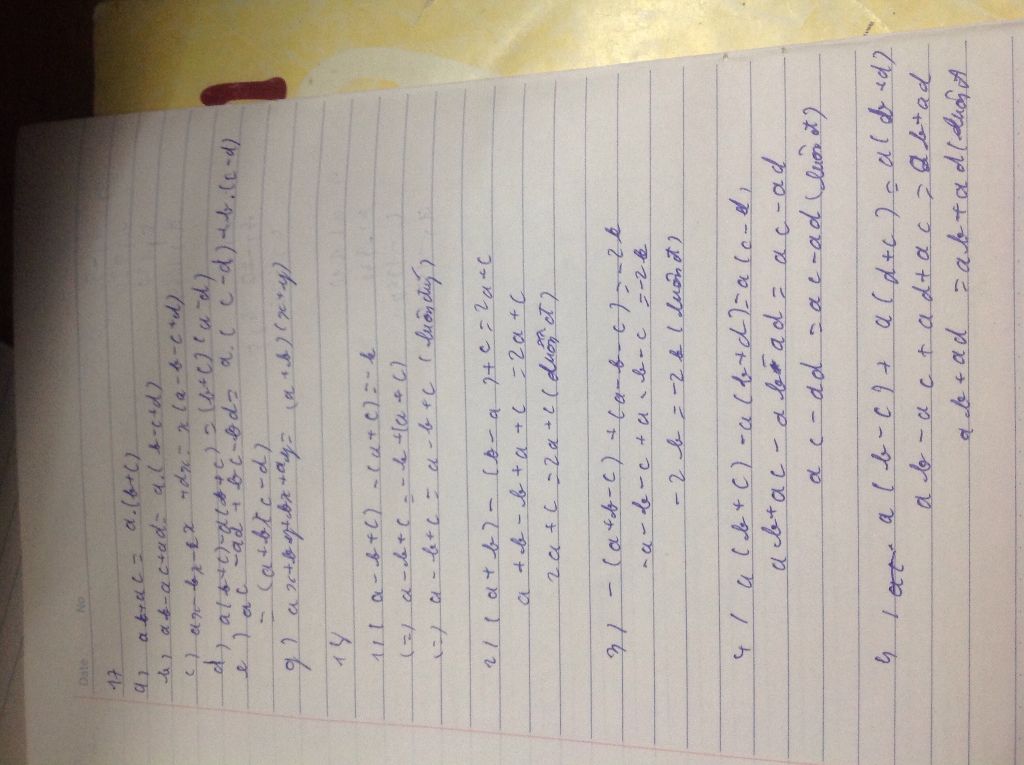 Date No
17
a) ab+ac = a.(b+c)
b) ab-ac+ad = a.(b-c+d)
c) ax-bx-cx+dx = x(a-b-c+d)
d) a(b+c)-d(b+c) = (b+c)(a-d)
e) ac-ad+bc-bd = a.(c-d)+b.(c-d)
= (a+b)(c-d)
g) ax+by+bx+ay = (a+b)(x+y)
14
1) (a-b+c)-(a+c) = -b
(=) a-b+c = -b+(a+c)
(=) a-b+c = a-b+c (luôn đúng)
2) (a+b)-(b-a)+c = 2a+c
a+b-b+a+c = 2a+c
2a+c = 2a+c (luôn đ)
3) -(a+b-c)+(a-b-c) = -2b
-a-b-c+a-b-c = -2b
-2b = -2b (luôn đ)
4) a(b+c)-a(b+d) = a(c-d)
ab+ac-ab-ad = ac-ad
ac-ad = ac-ad (luôn đ)
5) a(b-c)+a(d+c) = a(b+d)
ab-ac+ad+ac = ab+ad
ab+ad = ab+ad (luôn đ)